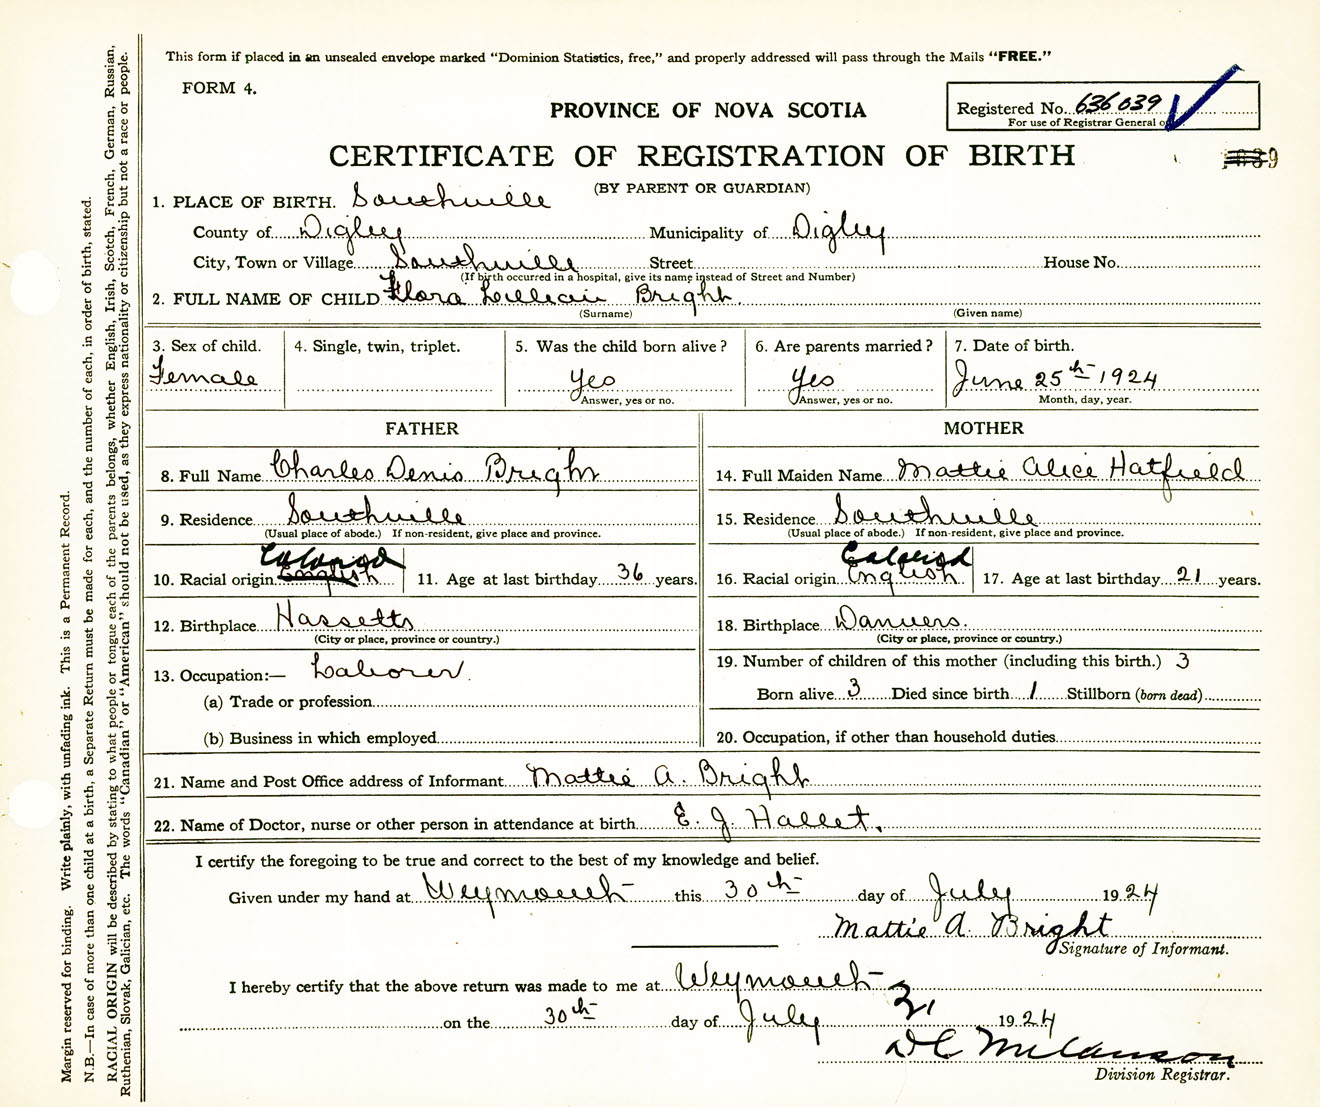 This form if placed in an unsealed envelope marked "Dominion Statistics, free," and properly addressed will pass through the Mails "FREE."
FORM 4.
PROVINCE OF NOVA SCOTIA
Registered No. 636039
For use of Registrar General o
CERTIFICATE OF REGISTRATION OF BIRTH
(BY PARENT OR GUARDIAN)
1. PLACE OF BIRTH. Southville
County of Digby Municipality of Digby
City, Town or Village Southville Street House No.
(If birth occurred in a hospital, give its name instead of Street and Number)
2. FULL NAME OF CHILD Flora Lillian Bright.
(Surname) (Given name)
3. Sex of child. 4. Single, twin, triplet. 5. Was the child born alive? 6. Are parents married? 7. Date of birth.
Female yes yes June 25th 1924
Answer, yes or no. Answer, yes or no. Month, day, year.
FATHER MOTHER
8. Full Name Charles Denis Bright 14. Full Maiden Name Mattie Alice Hatfield
9. Residence Southville 15. Residence Southville
(Usual place of abode.) If non-resident, give place and province. (Usual place of abode.) If non-resident, give place and province.
Colored Colored
10. Racial origin English 11. Age at last birthday 36 years. 16. Racial origin English 17. Age at last birthday 21 years.
12. Birthplace Hassetts 18. Birthplace Danvers.
(City or place, province or country.) (City or place, province or country.)
13. Occupation:— Laborer. 19. Number of children of this mother (including this birth.) 3
(a) Trade or profession Born alive 3 Died since birth 1 Stillborn (born dead)
(b) Business in which employed 20. Occupation, if other than household duties
21. Name and Post Office address of Informant Mattie A. Bright
22. Name of Doctor, nurse or other person in attendance at birth E. J. Hallet.
I certify the foregoing to be true and correct to the best of my knowledge and belief.
Given under my hand at Weymouth this 30th day of July 1924
Mattie A. Bright
Signature of Informant.
I hereby certify that the above return was made to me at Weymouth
31
on the 30th day of July 1924
Division Registrar.
Margin reserved for binding. Write plainly, with unfading ink. This is a Permanent Record.
N.B.—In case of more than one child at a birth, a Separate Return must be made for each, and the number of each, in order of birth, stated.
RACIAL ORIGIN will be described by stating to what people or tongue each of the parents belongs, whether English, Irish, Scotch, French, German, Russian,
Ruthenian, Slovak, Galician, etc. The words "Canadian" or "American" should not be used, as they express nationality or citizenship but not a race or people.